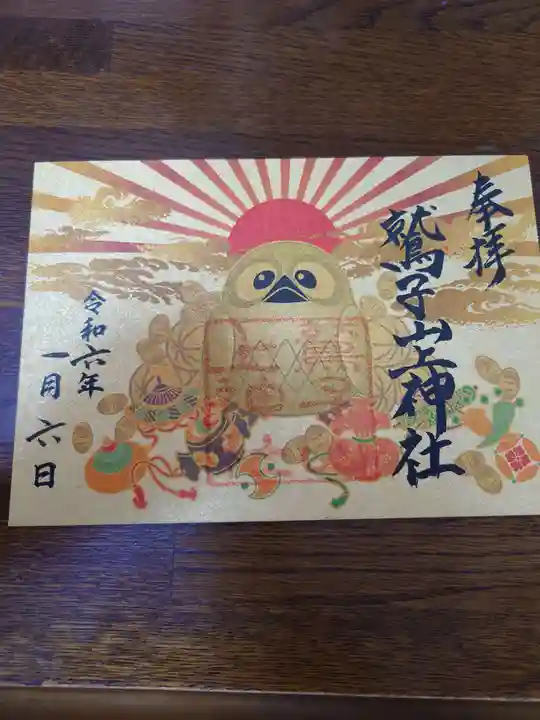 奉拝
鷲子山上神社
令和六年
一月六日